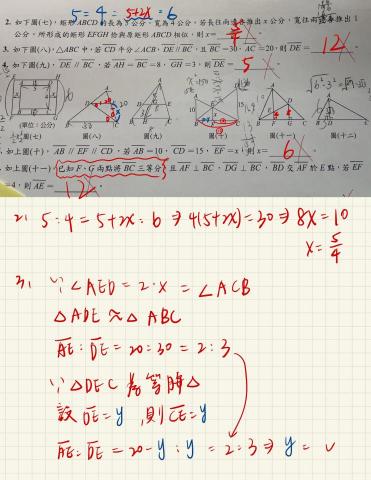 5 : 4 = 5+2x : 6
2. 如下圖(七)，矩形ABCD的長為5公分，寬為4公分，若長往兩邊各推出x公分，寬往兩邊各推出1
公分，所形成的矩形EFGH恰與原矩形ABCD相似，則x= 5/4
3. 如下圖(八)，△ABC中，若CD平分∠ACB，DE // BC，且BC=30，AC=20，則DE= 12
4. 如下圖(九)，DE // BC，若AH=BC=8，GH=3，則DE= 5
(單位：公分)
圖(七) 圖(八) 圖(九) 圖(十) 圖(十一) 圖(十二)
如上圖(十)，AB // EF // CD，若AB=10，CD=15，EF=x，則x= 6
如上圖(十一)，已知F、G兩點將BC三等分，且AF⊥BC，DG⊥BC，BD交AF於E點，若EF
=4，則AE= 12
2. 5:4 = 5+2x : 6 ⇒ 4(5+2x)=30 ⇒ 8x=10
x = 5/4
3. ∵∠AED = 2·x = ∠ACB
△ADE ~ △ABC
AE : DE = 20 : 30 = 2 : 3
∵△DEC 為等腰△
設 DE = y ，則 CE = y
AE : DE = 20-y : y = 2 : 3 ⇒ y =